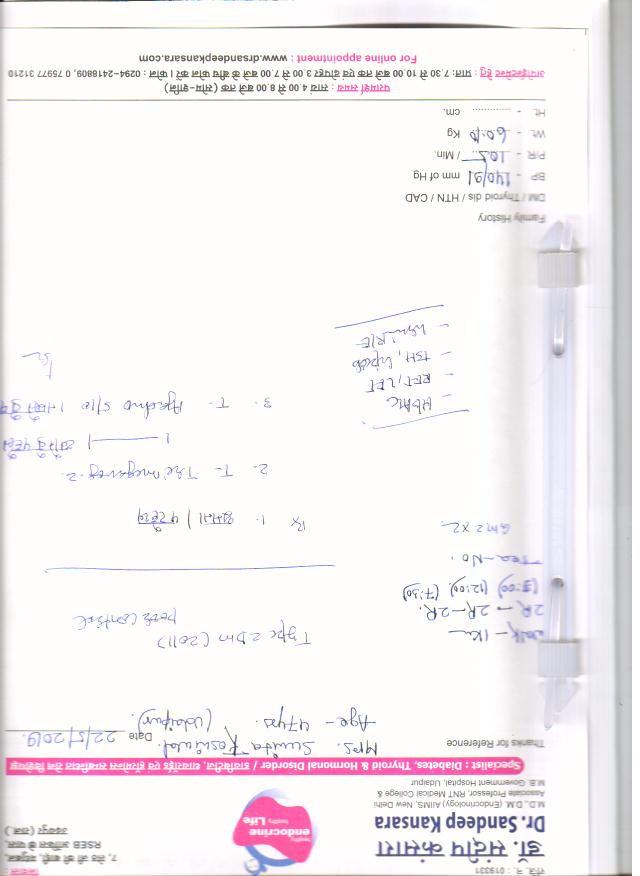 रजि. नं. : 019331
डॉ. संदीप कंसारा
Dr. Sandeep Kansara
M.D., D.M. (Endocrinology) AIIMS, New Delhi
Associate Professor, RNT Medical College &
M.B. Government Hospital, Udaipur
healthy
endocrine
healthy
Life
निवास :
7, सेठ जी की बाड़ी,
RSEB ऑफिस के पास,
उदयपुर (राज.)
Specialist : Diabetes, Thyroid & Hormonal Disorder / डायबिटीज, थायरॉइड एवं हॉर्मोन्स सम्बन्धित रोग विशेषज्ञ
Thanks for Reference
Mrs. Sunita
Date 22/5/2019.
Age - 47yrs. (Udaipur).
Walk - 1km
2R → 2R - 2R.
(9:00) (12:00) (7:30)
Tea - No.
GM2 x 2
Type 2 DM (2011)
poor control
Rx 1.
2. T-
1 ——— 1
3. T. 5/10
- HbA1c
- RFT, LFT
- TSH, Lipid
- Urine R/E
Family History
DM / Thyroid dis / HTN / CAD
BP - 140/91 mm of Hg
P/R - 102 / Min.
Wt. - 60.10 Kg
Ht. - ............ cm.
परामर्श समय : सायं 4.00 से 8.00 बजे तक (सोम-शनि)
अपॉइन्टमेन्ट हेतु : प्रातः 7.30 से 10.00 बजे तक एवं दोपहर 3.00 से 7.00 बजे के बीच फोन करें । फोन : 0294-2418809, 0 75977 31210
For online appointment : www.drsandeepkansara.com